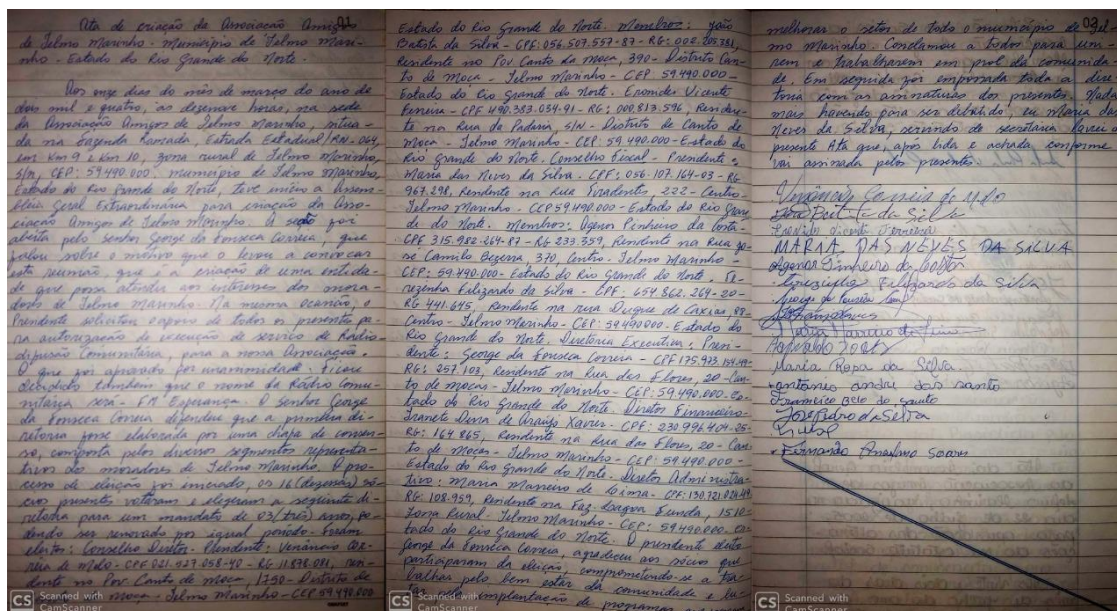 01
Ata de criação da Associação Amigos
de Ielmo Marinho. Município de Ielmo Mari-
nho - Estado do Rio Grande do Norte.
Aos onze dias do mês de março do ano de
dois mil e quatro, às dezenove horas, na sede
da Associação Amigos de Ielmo Marinho, situa-
da na Fazenda Ramada, Estrada Estadual/RN-064,
em Km 9 e Km 10, zona rural de Ielmo Marinho,
s/n, CEP: 59.490.000. município de Ielmo Marinho,
Estado do Rio Grande do Norte, teve início a Assem-
bléia Geral Extraordinária para criação da Asso-
ciação Amigos de Ielmo Marinho. A seção foi
aberta pelo senhor George da Fonseca Correia, que
falou sobre o motivo que o levou a convocar
esta reunião, que é a criação de uma entida-
de que possa atender aos interesses dos mora-
dores de Ielmo Marinho. Na mesma ocasião, o
Presidente solicitou apoio de todos os presentes pa-
ra autorização de execução de serviço de Rádio-
difusão Comunitária, para a nossa Associação.
O que foi aprovado por unanimidade. Ficou
decidido também que o nome da Rádio Comu-
nitária será - FM Esperança. O senhor George
da Fonseca Correia defendeu que a primeira di-
retoria fosse elaborada por uma chapa de consen-
so, composta pelos diversos segmentos representa-
tivos dos moradores de Ielmo Marinho. O pro-
cesso de eleição foi iniciado, os 16 (dezesseis) só-
cios presentes votaram e elegeram a seguinte di-
retoria para um mandato de 03 (três) anos, po-
dendo ser renovado por igual período. Foram
eleitos: Conselho Diretor. Presidente: Venâncio Cor-
reia de Melo - CPF 021.527.058-40 - RG 11.878.081, resi-
dente no Pov Canto de Moça, 1750 - Distrito de
de moça - Ielmo Marinho - CEP 59.490.000
Estado do Rio Grande do Norte. Membros: João
Batista da Silva - CPF: 056.507.557-87 - RG: 002.205.381,
Residente no Pov Canto de Moça, 390 - Distrito Can-
to de Moça - Ielmo Marinho - CEP 59.490.000 -
Estado do Rio Grande do Norte. Eromdes Vicente
Ferreira - CPF 490.383.034-91 - RG: 000.813.596, Residen-
te na Rua da Padaria, S/N - Distrito de Canto de
Moça - Ielmo Marinho - CEP 59.490.000 - Estado do
Rio Grande do Norte. Conselho Fiscal - Presidente:
Maria das Neves da Silva. CPF: 056.107.164-03 - RG
967.298, Residente na Rua Tiradentes, 222 - Centro
Ielmo Marinho. CEP 59.490.000 - Estado do Rio Gran-
de do Norte. Membros: Agenor Pinheiro da Costa -
CPF 315.982.264-87 - RG 233.359, Residente na Rua Jo-
sé Camilo Bezerra, 370, Centro - Ielmo Marinho -
CEP: 59.490.000 - Estado do Rio Grande do Norte. Te-
rezinha Filizardo da Silva - CPF: 654.862.264-20 -
RG 441.645, Residente na rua Duque de Caxias, 88 -
Centro - Ielmo Marinho - CEP: 59.490.000 - Estado do
Rio Grande do Norte. Diretoria Executiva: Presi-
dente: George da Fonseca Correia - CPF 175.923.154-49 -
RG: 257.103, Residente na Rua das Flores, 20 - Can-
to de moças - Ielmo Marinho - CEP: 59.490.000 - Es-
tado do Rio Grande do Norte. Diretor Financeiro -
Francete Dora de Araújo Xavier - CPF: 230.996.404-25 -
RG: 164.865, Residente na Rua das Flores, 20 - Can-
to de Moças - Ielmo Marinho - CEP 59.490.000 -
Estado do Rio Grande do Norte. Diretor Administra-
tivo: Maria Marreiro de Lima - CPF: 130.721.024-49
RG: 108.959, Residente na Faz. Lagoa Funda, 1510 -
Zona Rural. Ielmo Marinho - CEP: 59.490.000. Es-
tado do Rio Grande do Norte. O presidente eleito
George da Fonseca Correia, agradeceu aos sócios que
participaram da eleição, comprometendo-se a tra-
balhar pelo bem estar da comunidade e lu-
implantação de programas
02
melhorar o setor de todo o município de Iel-
mo Marinho. Conclamou a todos para uni-
rem e trabalharem em prol da comunida-
de. Em seguida foi empossada toda a dire
toria com as assinaturas dos presentes. Nada
mais havendo para ser debatido, eu Maria das
Neves da Silva, servindo de secretária lavrei a
presente Ata que, após lida e achada conforme
vai assinada pelos presentes.
Venâncio Correia de Melo
João Batista da Silva
Vicente Ferreira
MARIA DAS NEVES DA SILVA
Agenor Pinheiro da Costa
Terezinha Filizardo da Silva
George da Fonseca
Maria Marreiro de Lima
Maria Rosa da Silva.
antônio andré dos santo
Francisco Belo do Santo
José Pedro da Silva
Fernando Anselmo Soares
CS Scanned with
CamScanner
CS Scanned with
CamScanner
CS Scanned with
CamScanner